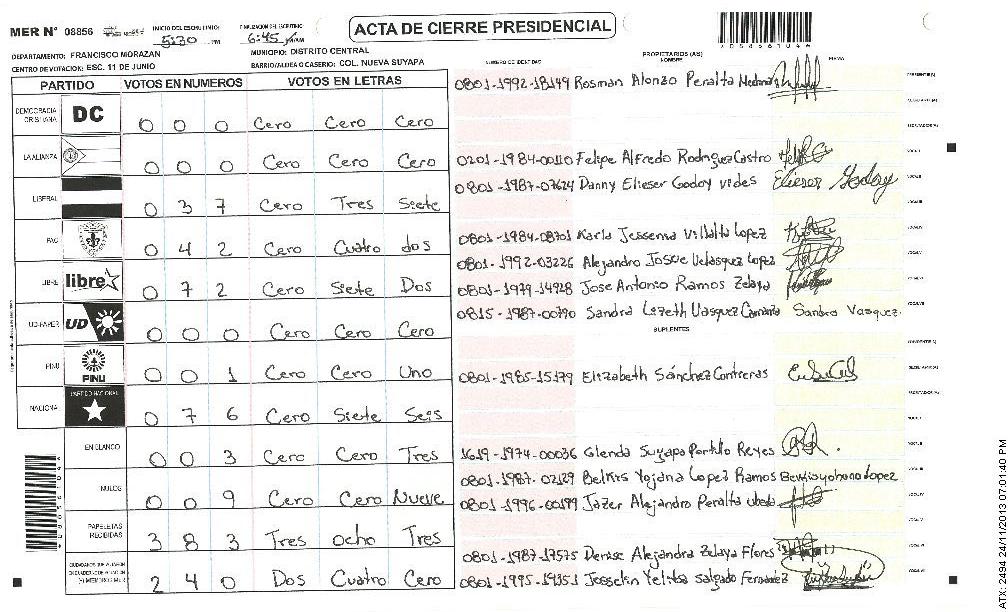 MER Nº 08856 INICIO DEL ESCRUTINIO: 5:30 PM FINALIZACION DEL ESCRUTINIO 6:45
ACTA DE CIERRE PRESIDENCIAL
DEPARTAMENTO: FRANCISCO MORAZAN MUNICIPIO: DISTRITO CENTRAL
CENTRO DE VOTACION: ESC. 11 DE JUNIO BARRIO/ALDEA O CASERIO: COL. NUEVA SUYAPA
PARTIDO VOTOS EN NUMEROS VOTOS EN LETRAS
DEMOCRACIA CRISTIANA DC 0 0 0 Cero Cero Cero
LA ALIANZA 0 0 0 Cero Cero Cero
LIBERAL 0 3 7 Cero Tres Siete
PAC 0 4 2 Cero Cuatro dos
LIBRE libre 0 7 2 Cero Siete Dos
UD-FAPER UD 0 0 0 Cero Cero Cero
PINU PINU 0 0 1 Cero Cero Uno
NACIONAL PARTIDO NACIONAL 0 7 6 Cero Siete Seis
EN BLANCO 0 0 3 Cero Cero Tres
NULOS 0 0 9 Cero Cero Nueve
PAPELETAS RECIBIDAS 3 8 3 Tres ocho Tres
2 4 0 Dos Cuatro Cero
NUMERO DE IDENTIDAD PROPIETARIOS (AS) NOMBRE FIRMA
0801-1992-18149 Rosman Alonzo Peralta Medina
0201-1984-00110 Felipe Alfredo Rodriguez Castro
0801-1987-07624 Danny Elieser Godoy vides Elieser Godoy
0801-1984-08701 Karla Jessenia Villalta Lopez
0801-1992-03226 Alejandro Josue Velasquez Lopez
0801-1979-14928 Jose Antonio Ramos Zelaya
0815-1987-00790 Sandra Lizeth Vasquez Camaria Sandra Vasquez
SUPLENTES
0801-1985-15179 Elizabeth Sánchez Contreras
1619-1974-00036 Glenda Suyapa Portillo Reyes
0801-1987-02129 Belkis Yojana Lopez Ramos
0801-1996-00199 Jazer Alejandro Peralta Ubeda
0801-1987-17575 Denise Alejandra Zelaya Flores
0801-1995-19351 Josselin Yelitsa Salgado Fernandez
ATX: 2494 24/11/2013 07:01:40 PM